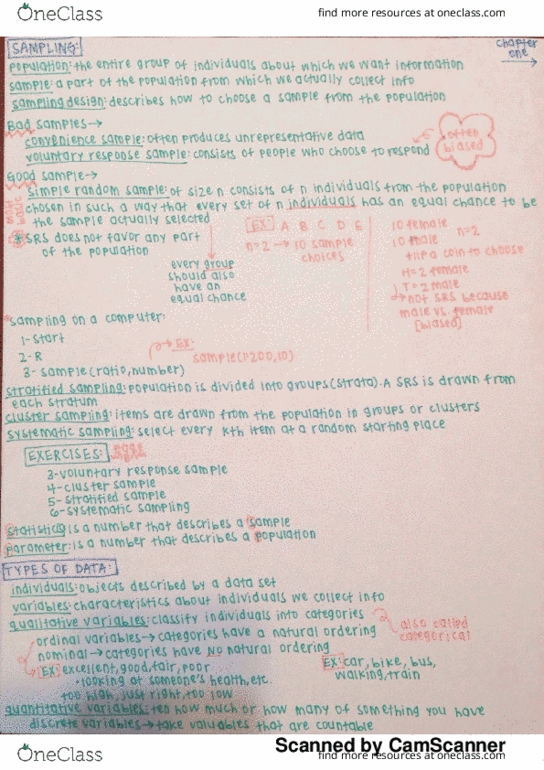 OneClass
find more resources at oneclass.com
SAMPLING:
chapter one
population: the entire group of individuals about which we want information
sample: a part of the population from which we actually collect info
sampling design: describes how to choose a sample from the population
Bad samples→
convenience sample: often produces unrepresentative data
voluntary response sample: consists of people who choose to respond
often biased
Good sample→
simple random sample: of size n consists of n individuals from the population
chosen in such a way that every set of n individuals has an equal chance to be
the sample actually selected
most basic
*SRS does not favor any part
of the population
every group
should also
have an
equal chance
EX: A B C D E
n=2 → 10 sample
choices
10 female
10 male
n=2
flip a coin to choose
H=2 female
T=2 male
→not SRS because
male vs. female
[biased]
*sampling on a computer:
1-start
2-R
3- sample(ratio,number)
→EX:
sample(1:200,10)
stratified sampling: population is divided into groups(strata). A SRS is drawn from
each stratum
cluster sampling: items are drawn from the population in groups or clusters
systematic sampling: select every kth item at a random starting place
EXERCISES:
3-voluntary response sample
4-cluster sample
5-stratified sample
6-systematic sampling
statistics is a number that describes a sample
parameter: is a number that describes a population
TYPES OF DATA:
individuals: objects described by a data set
variables: characteristics about individuals we collect info
qualitative variables: classify individuals into categories
also called
categorical
ordinal variables→categories have a natural ordering
nominal→categories have NO natural ordering
EX: excellent, good, fair, poor
•looking at someone's health, etc.
too high, just right, too low
EX: car, bike, bus,
walking, train
quantitative variables: tell how much or how many of something you have
discrete variables→take valuables that are countable
Scanned by CamScanner
OneClass
find more resources at oneclass.com